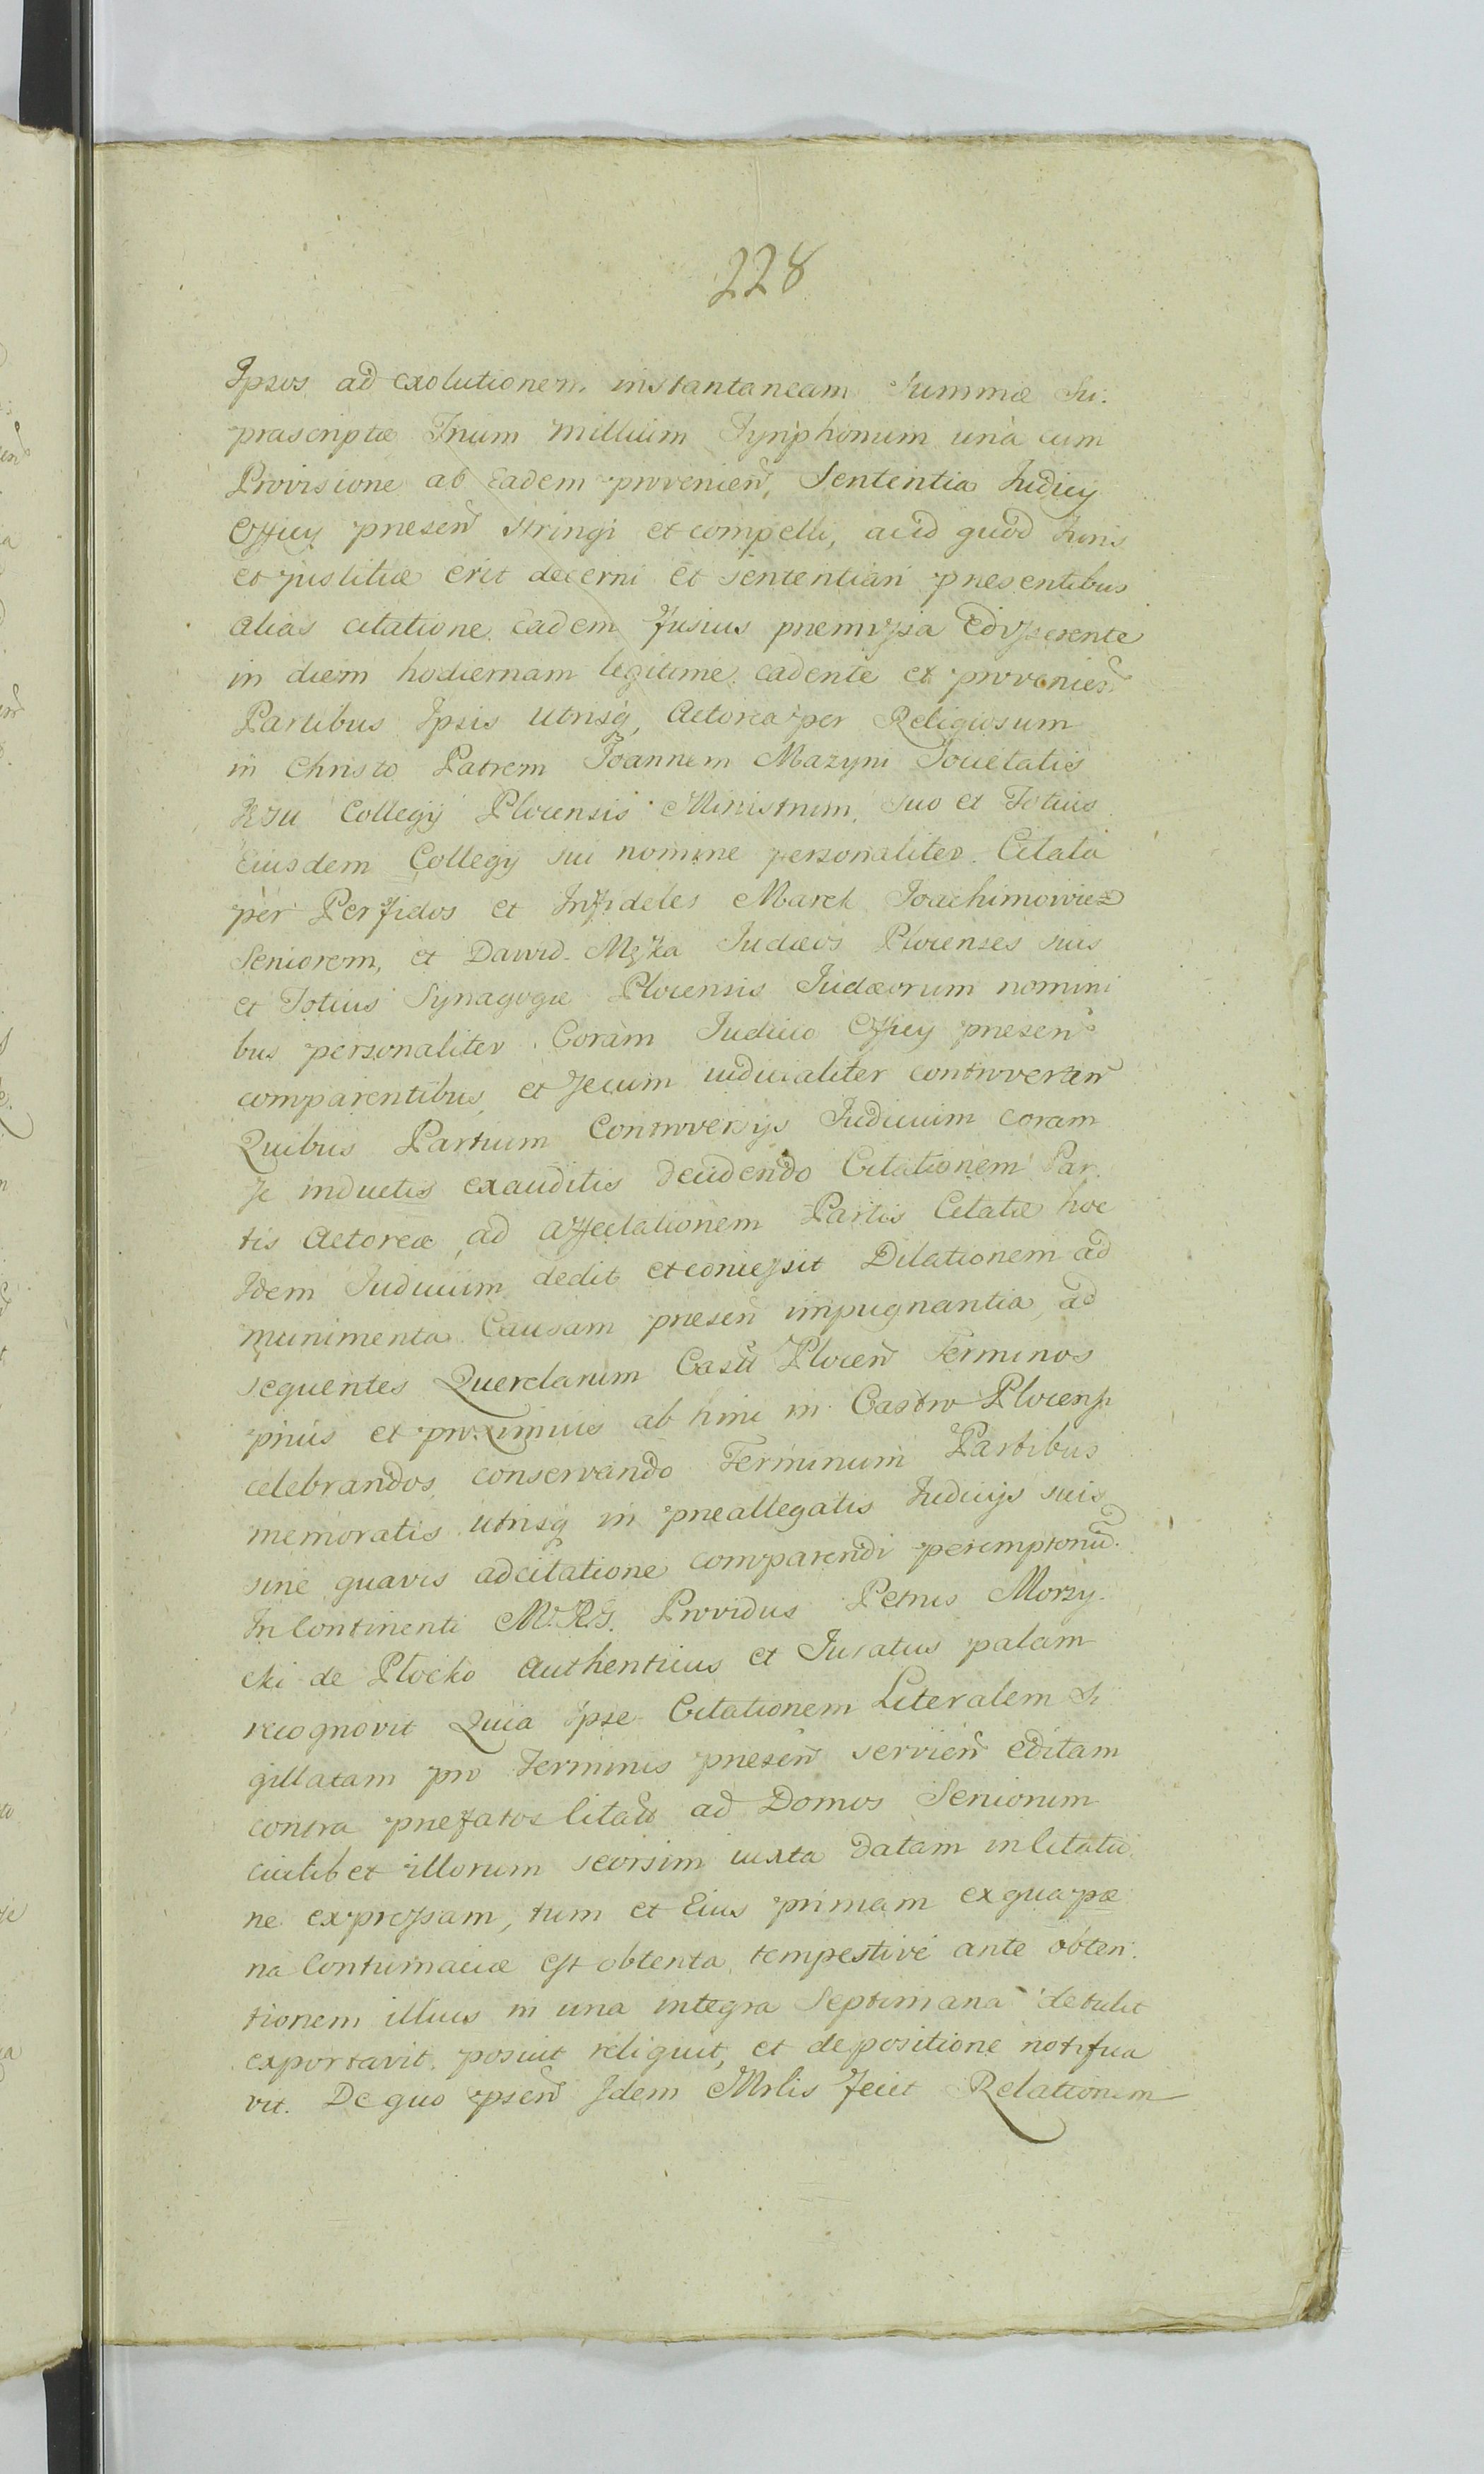 228
Ipsos ad exolutionem instantaneam Summæ Su-
præscriptæ Trium millium Tynphonum unà cum
Provisione ab eadem provenien, Sententia Judicij
Officij præsen stringi et compelli, ac id quod Juris
et justitiæ erit decerni et sententiari præsentibus
alias citatione eadem fusius præmissa edisserente
in diem hodiernam legitime cadente et provenien
Partibus Ipsis Utrisq, Actorea per Religiosum
in Christo Patrem Joannem Mazyni Societatis
Jesu Collegij Plocensis Ministrum, suo et Totius
Eiusdem Collegij sui nomine personaliter. Citata
per Perfidos et Infideles Marek Joachimowicz
Seniorem, et Dawid Męka Judæos Plocenses suis
et Totius Synagogæ Plocensis Judæorum nomini
bus personaliter. Coram Judicio Officij presen
comparentibus, et secum iudicialiter controverten
Quibus Partium Controversijs Judicium coram
se inductis exauditis decidendo Citationem Par
tis Actoreæ, ad affectationem Partis Citatæ hoc
Idem Judicium dedit et concessit Dilationem ad
munimenta Causam præsen impugnantia, ad
sequentes Querelarum Castri Plocen Terminos
prius et proximius ab hinc in Castro Plocensi
celebrandos, conservando Terminum Partibus
memoratis utrisq in præallegatis Judicijs suis
sine quavis adcitatione comparendi peremptorium.
In Continenti M. R. G. Providus Petrus Morzy-
cki de Plocko Authenticus et Juratus palam
recognovit Quia Ipse Citationem Literalem Si
gillatam pro Terminis præsen servien editam
contra præfatos Citatos ad Domos Seniorum
cuilibet illorum seorsim iuxta datam in Citatio
ne expressam, tum et Eius primam ex qua pæ
na Contumaciæ est obtenta, tempestivè ante obten-
tionem illius in una integra Septimana detulit
exportavit posuit reliquit, et de positione notifica
vit. De quo præsen Idem Mrlis fecit Relationem